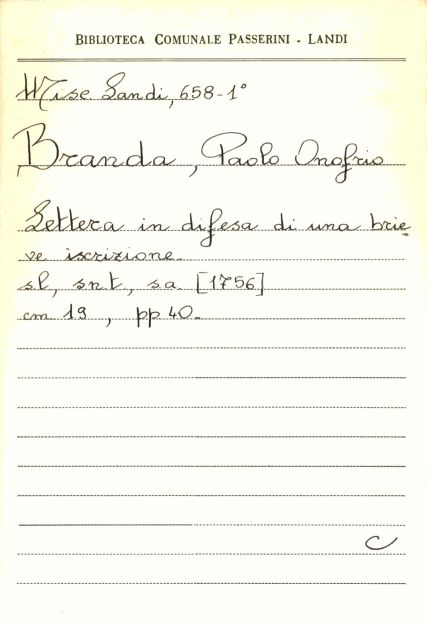 BIBLIOTECA COMUNALE PASSERINI - LANDI
Misc Landi, 658-1°
Branda, Paolo Onofrio
Lettera in difesa di una brie=
ve iscrizione.
s.l., s.n.t., s.a. [1756]
cm 19, pp 40.
C